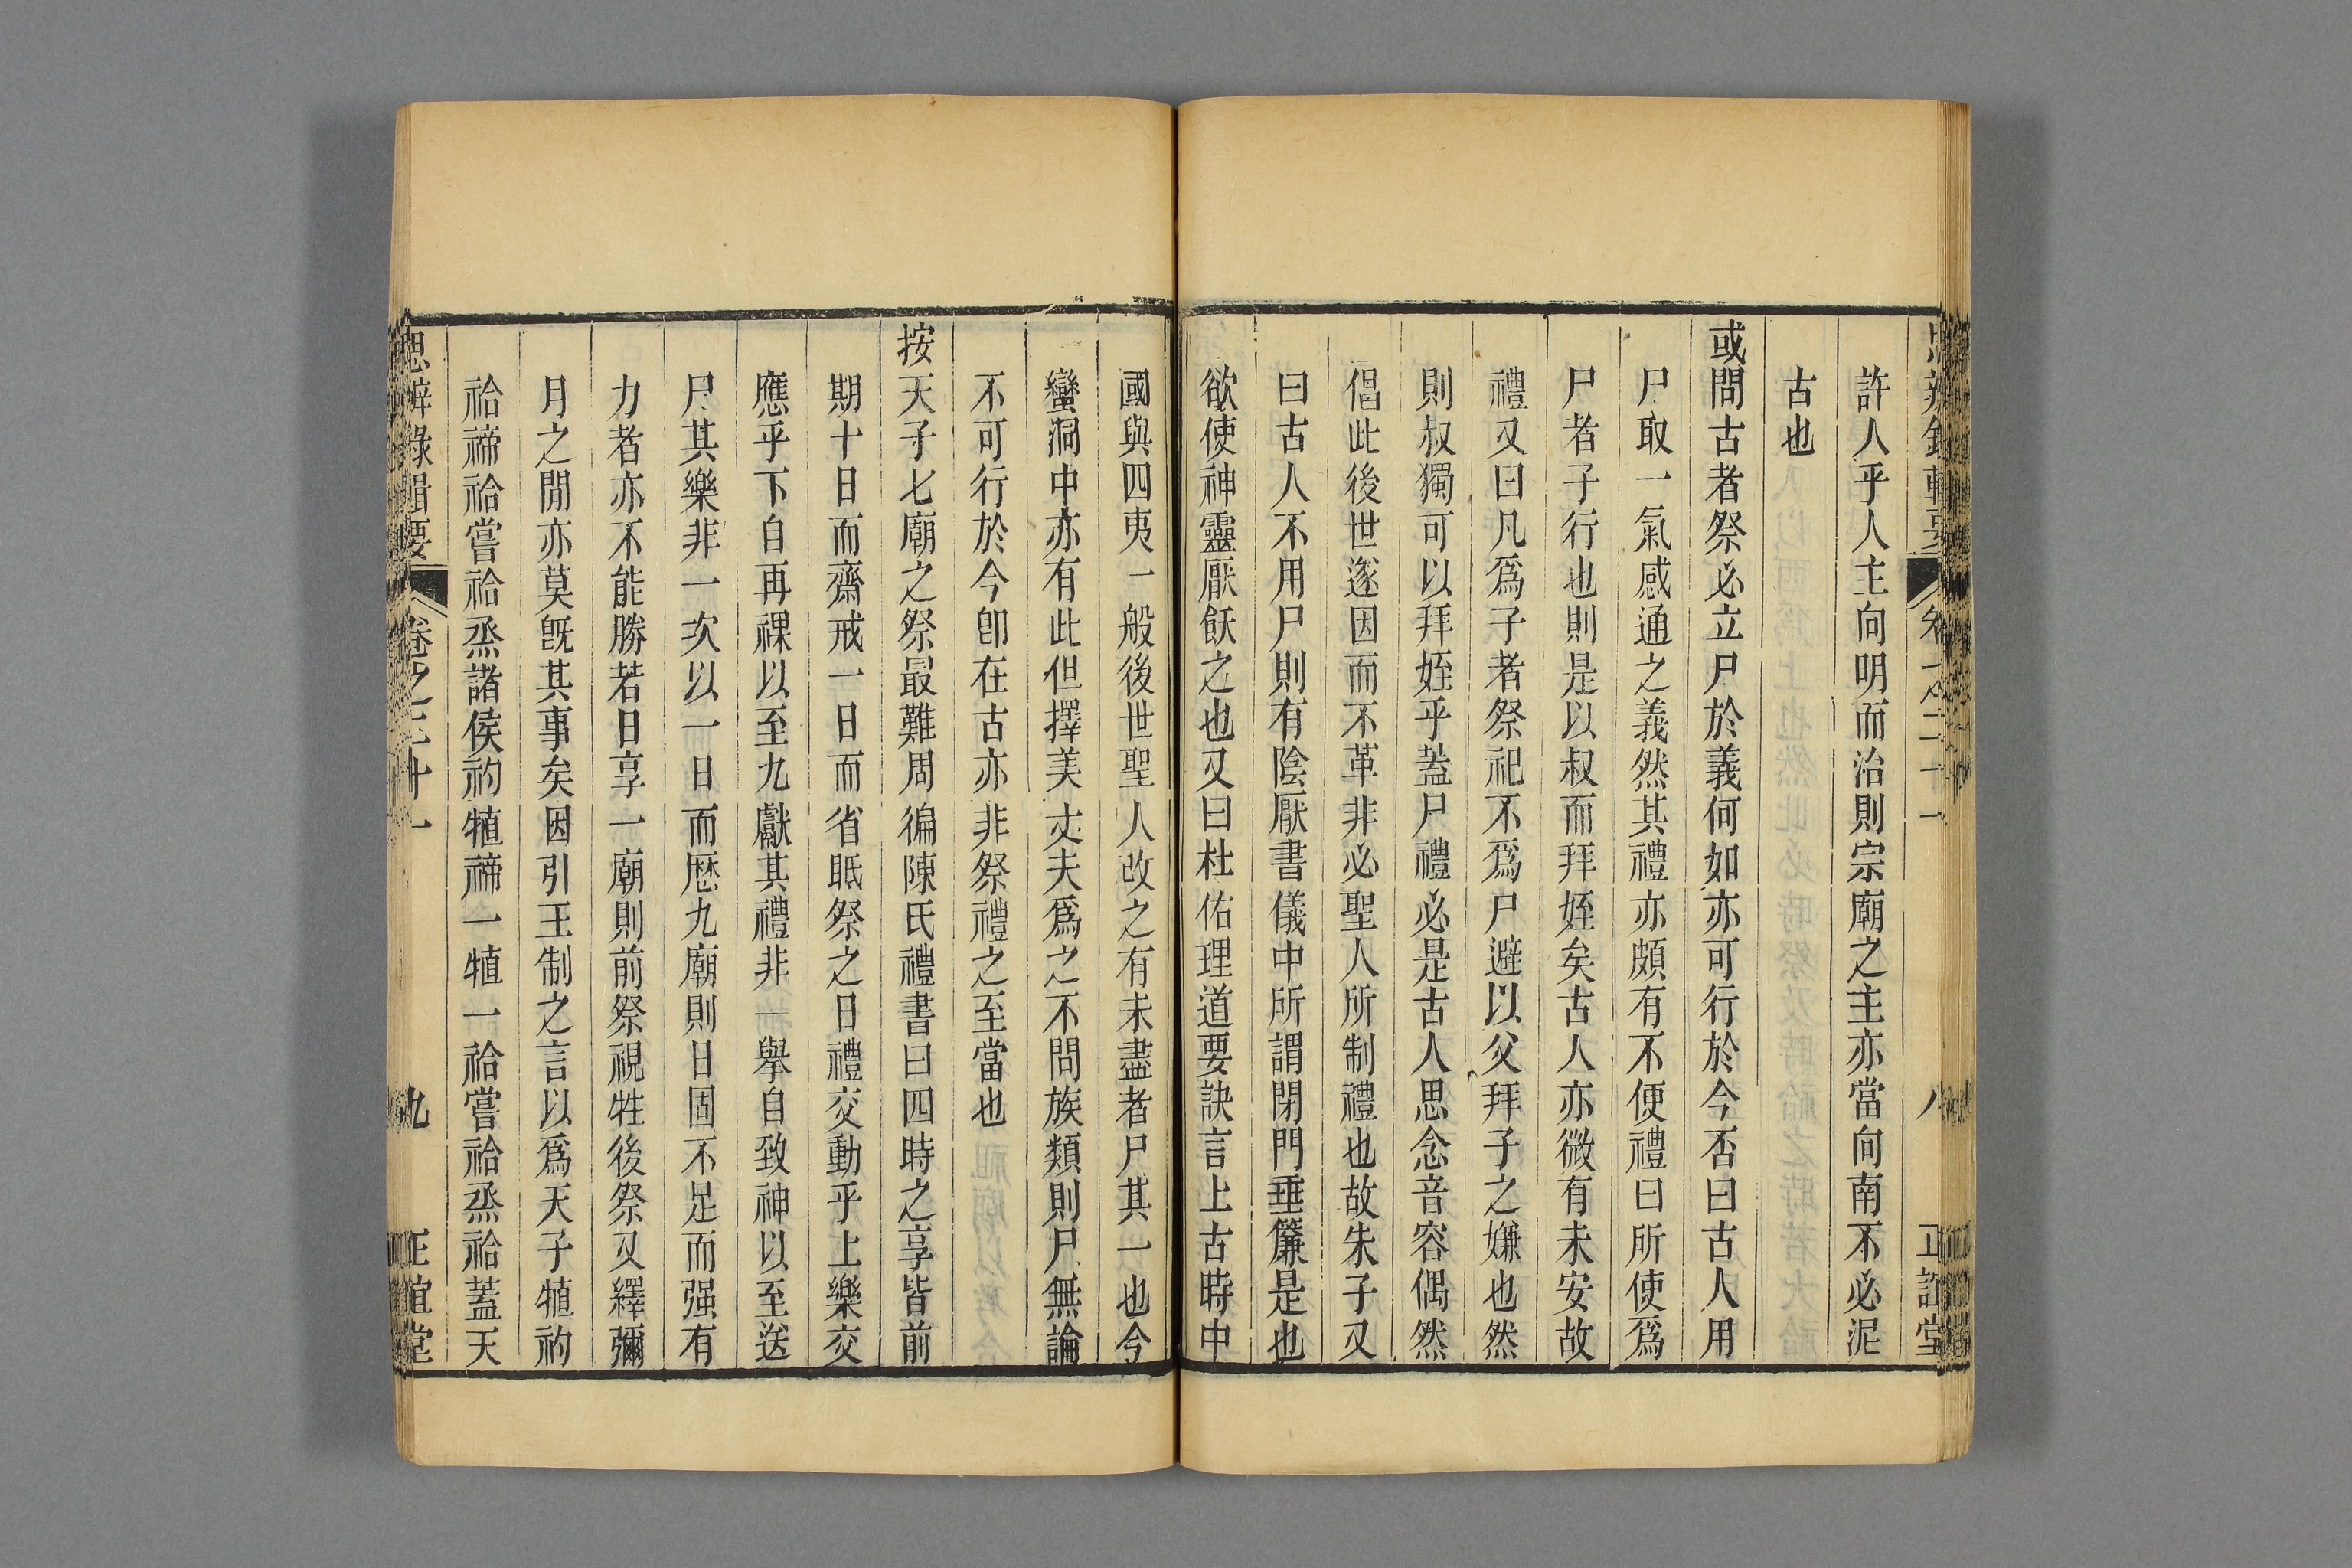 許人乎人主向明而治則宗廟之主亦當向南不必泥
古也
或問古者祭必立尸於義何如亦可行於今否曰古人用
尸取一氣感通之義然其禮亦頗有不便禮曰所使爲
尸者子行也則是以叔而拜姪矣古人亦微有未安故
禮又曰凡爲子者祭祀不爲尸避以父拜子之嫌也然
則叔獨可以拜姪乎蓋尸禮必是古人思念音容偶然
倡此後世遂因而不革非必聖人所制禮也故朱子又
曰古人不用尸則有陰厭書儀中所謂閉門垂簾是也
欲使神靈厭飫之也又曰杜佑理道要訣言上古時中
國與四夷一般後世聖人改之有未盡者尸其一也今
蠻洞中亦有此但擇美丈夫爲之不問族類則尸無論
不可行於今卽在古亦非祭禮之至當也
按天子七廟之祭最難周徧陳氏禮書曰四時之享皆前
期十日而齋戒一日而省眡祭之日禮交動乎上樂交
應乎下自再祼以至九獻其禮非一舉自致神以至送
尸其樂非一次以一日而歷九廟則日固不足而强有
力者亦不能勝若日享一廟則前祭視牲後祭又繹彌
月之閒亦莫旣其事矣因引王制之言以爲天子犆礿
祫禘祫嘗祫烝諸侯礿犆禘一犆一祫嘗祫烝祫蓋天
思辨錄輯要 卷之三十一 九 正誼堂